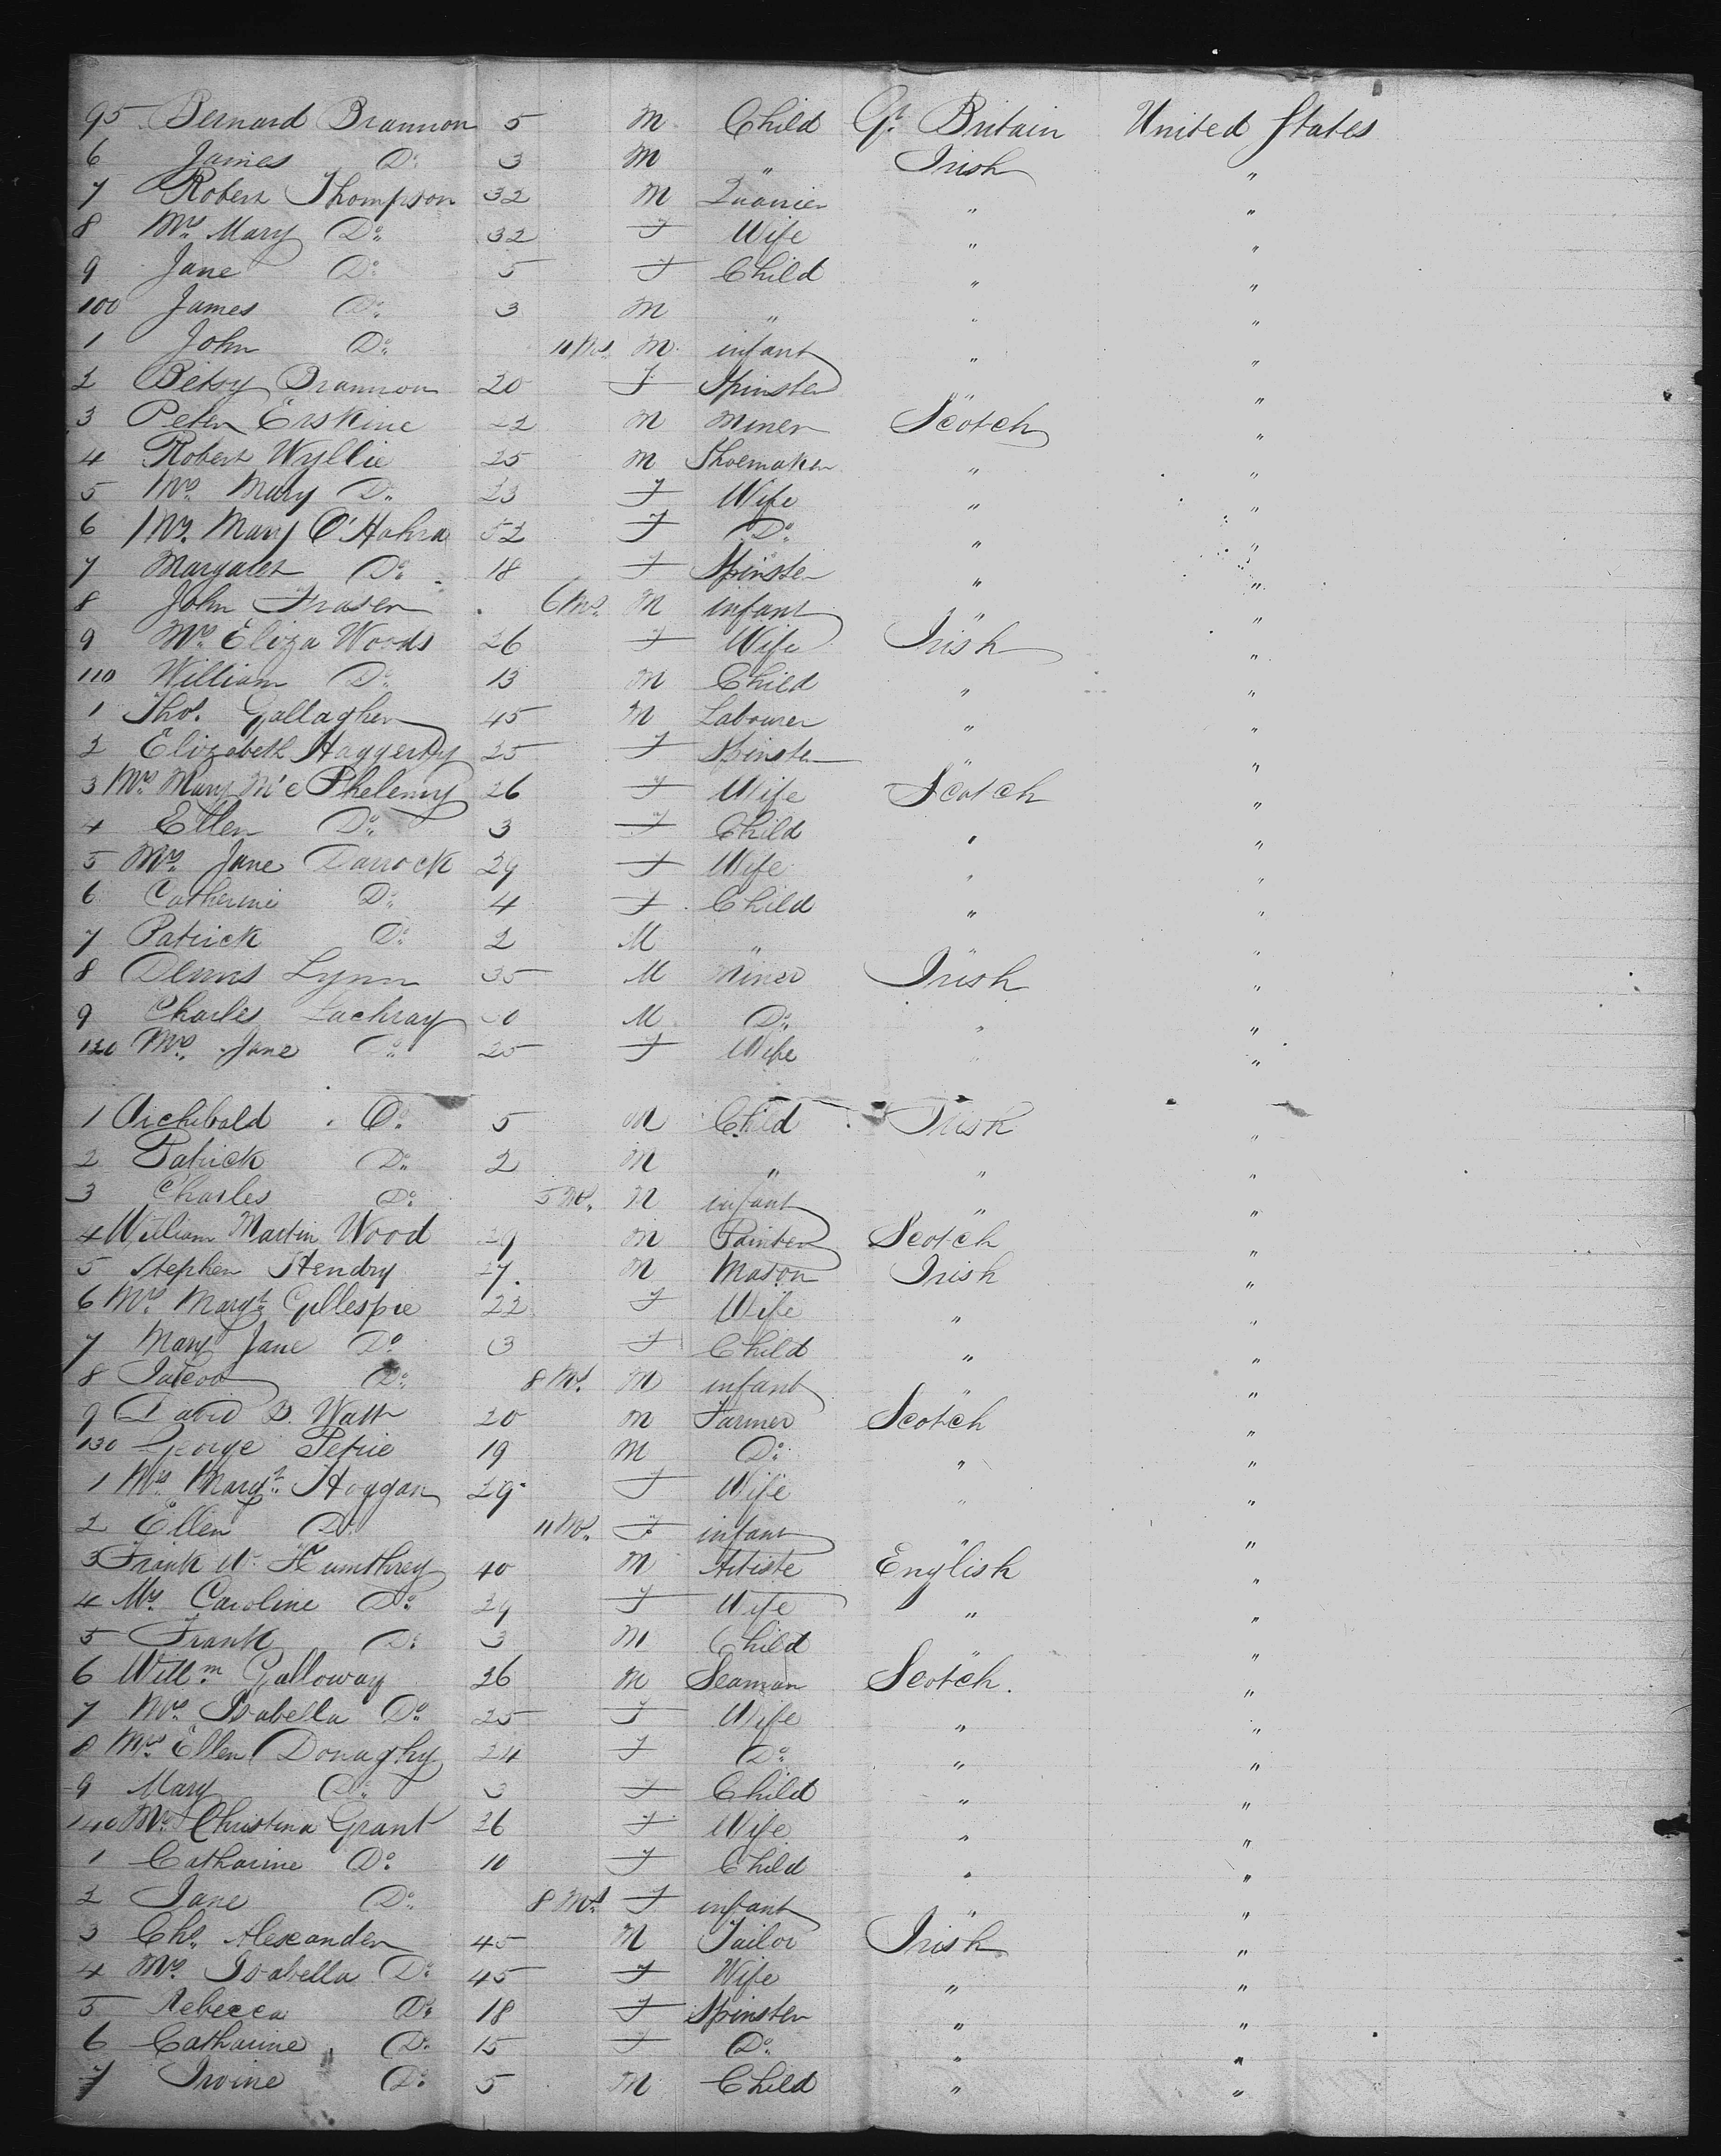 95 Bernard Brannon 5 M Child Gt. Britain United States
6 James Do. 3 M " Irish "
7 Robert Thompson 32 M Quarrier " "
8 Mrs. Mary Do. 32 F Wife " "
9 Jane Do. 5 F Child " "
100 James Do. 3 M " " "
1 John Do. 11 Mos. M infant " "
2 Betsy Brannon 20 F Spinster " "
3 Peter Erskine 22 M Miner Scotch "
4 Robert Wyllie 25 M Shoemaker " "
5 Mrs. Mary Do. 23 F Wife " "
6 Mrs. Mary O'Hahra 52 F Do. " "
7 Margaret Do. 18 F Spinster " "
8 John Fraser 6 Mos. M infant " "
9 Mrs. Eliza Woods 26 F Wife Irish "
110 William Do. 13 M Child " "
1 Thos. Gallagher 45 M Labourer " "
2 Elizabeth Haggerty 25 F Spinster " "
3 Mrs. Mary McPhelemy 26 F Wife Scotch "
4 Ellen Do. 3 F Child " "
5 Mrs. Jane Darrock 29 F Wife " "
6 Catherine Do. 4 F Child " "
7 Patrick Do. 2 M " " "
8 Dennis Lynn 35 M Miner Irish "
9 Charles Lachray M Do. " "
120 Mrs. Jane Do. 25 F Wife " "
1 Archibald Do. 5 M Child Irish "
2 Patrick Do. 2 M " " "
3 Charles Do. 5 Mos. M infant " "
4 William Martin Wood 29 M Painter Scotch "
5 Stephen Hendry 27 M Mason Irish "
6 Mrs. Margt. Gillespie 22 F Wife " "
7 Mary Jane Do. 3 F Child " "
8 Do. 8 Mos. M infant " "
9 David D. Watt 20 M Farmer Scotch "
130 George Petrie 19 M Do. " "
1 Mrs. Margt. Hoggan 29 F Wife " "
2 Ellen Do. 11 Mos. F infant " "
3 Frank W. Humthrey 40 M Artiste English "
4 Mrs. Caroline Do. 29 F Wife " "
5 Frank Do. 3 M Child "
6 Willm. Galloway 26 M Seaman Scotch. "
7 Mrs. Isabella Do. 25 F Wife " "
8 Mrs. Ellen Donaghy 24 F Do. " "
9 Mary Do. 3 F Child " "
140 Mrs. Christina Grant 26 F Wife " "
1 Catharine Do. 10 F Child " "
2 Jane Do. 8 Mos. F infant " "
3 Chs. Alexander 45 M Tailor Irish "
4 Mrs. Isabella Do. 45 F Wife " "
5 Rebecca Do. 18 F Spinster " "
6 Catharine Do. 15 F Do. " "
7 Irvine Do. 5 M Child " "